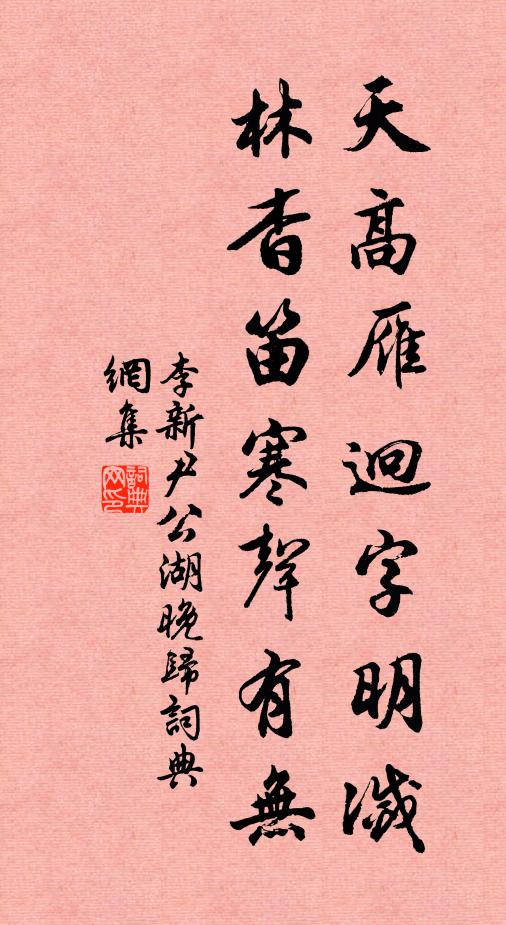 天高雁迥字明滅
林杳笛寒聲有無
李新尹公湖晚歸詞典
網集
詞典
网印